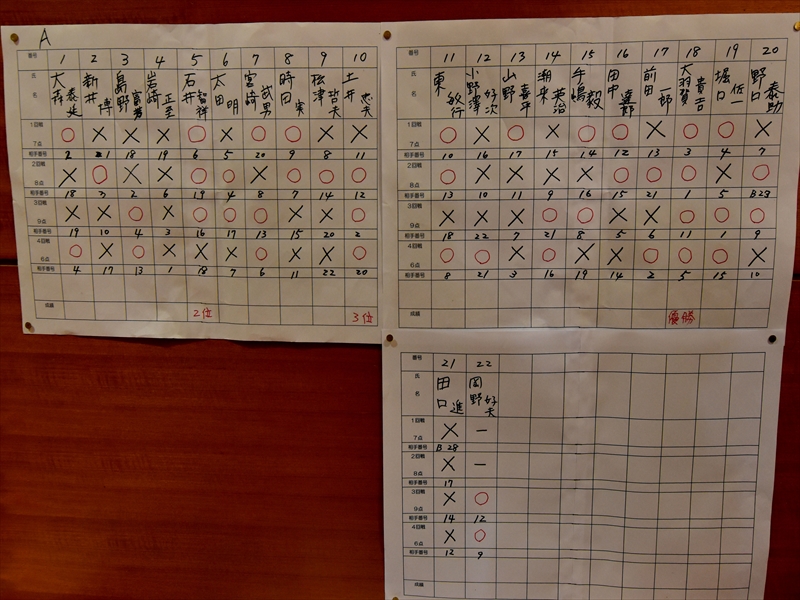 A
番号 1 2 3 4 5 6 7 8 9 10
氏名 大森泰延 新井博 島野 岩崎正至 石井智祥 太田明 宮崎武男 時田実 松津哲夫 土井忠夫
1回戦 ○ × × × ○ × ○ ○ × ×
7点
相手番号 2 21 18 19 6 5 20 9 8 11
2回戦 × ○ × × ○ ○ × ○ ○ ○
8点
相手番号 18 3 2 6 19 4 8 7 14 12
3回戦 × × ○ × ○ ○ ○ × × ○
9点
相手番号 19 10 4 3 16 17 13 15 20 2
4回戦 ○ × ○ × × × ○ × × ○
6点
相手番号 4 17 13 1 18 7 6 11 22 20
成績 2位 3位
番号 11 12 13 14 15 16 17 18 19 20
氏名 東敏行 小野澤好次 山野喜平 潮来英治 手嶋毅 田中達郎 前田一郎 大羽賀貴吉 堀口佐一 野口泰助
1回戦 ○ × ○ × ○ ○ × ○ ○ ×
7点
相手番号 10 16 17 15 14 12 13 3 4 7
2回戦 ○ × × × × ○ ○ ○ × ○
8点
相手番号 13 10 11 9 16 15 21 1 5 B28
3回戦 × × × ○ ○ × × ○ ○ ○
9点
相手番号 18 22 7 21 8 5 6 11 1 9
4回戦 ○ ○ × ○ × × ○ ○ ○ ×
6点
相手番号 8 21 3 16 19 14 2 5 15 10
成績 優勝
番号 21 22
氏名 田口進 岡野好夫
1回戦 × －
7点
相手番号 B28
2回戦 × －
8点
相手番号 17
3回戦 × ○
9点
相手番号 14 12
4回戦 × ○
6点
相手番号 12 9
成績